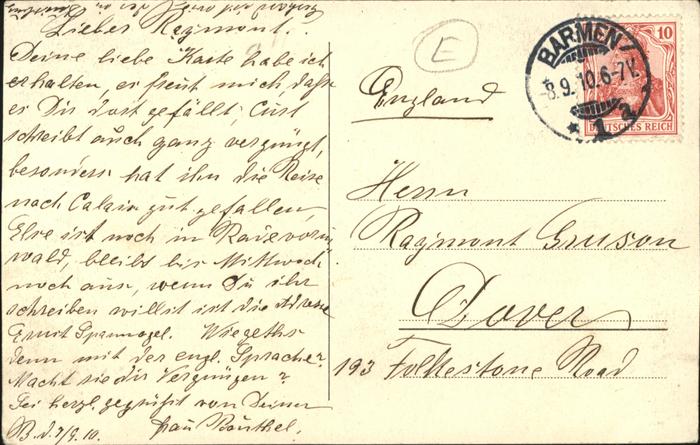 Lieber Ragmont.
Deine liebe Karte habe ich
erhalten, es freut mich, dass
es Dir dort gefällt, Curt
schreibt auch ganz vergnügt,
besonders hat ihn die Reise
nach Calais gut gefallen,
Else ist noch in Radevorm
wald, bleibt bis Mittwoch
noch aus, wenn Du ihr
schreiben willst ist die Adresse
Ernst Spannagel. Wie gehts
denn mit der engl. Sprache?
Macht sie dir Vergnügen?
Sei herzl. gegrüßt von Deiner
B. d. 7/9. 10. Frau
E
BARMEN
8.9.10.6-7V.
10
DEUTSCHES REICH
England
Herrn
Ragmont Gruson
Dover
193 Folkestone Road